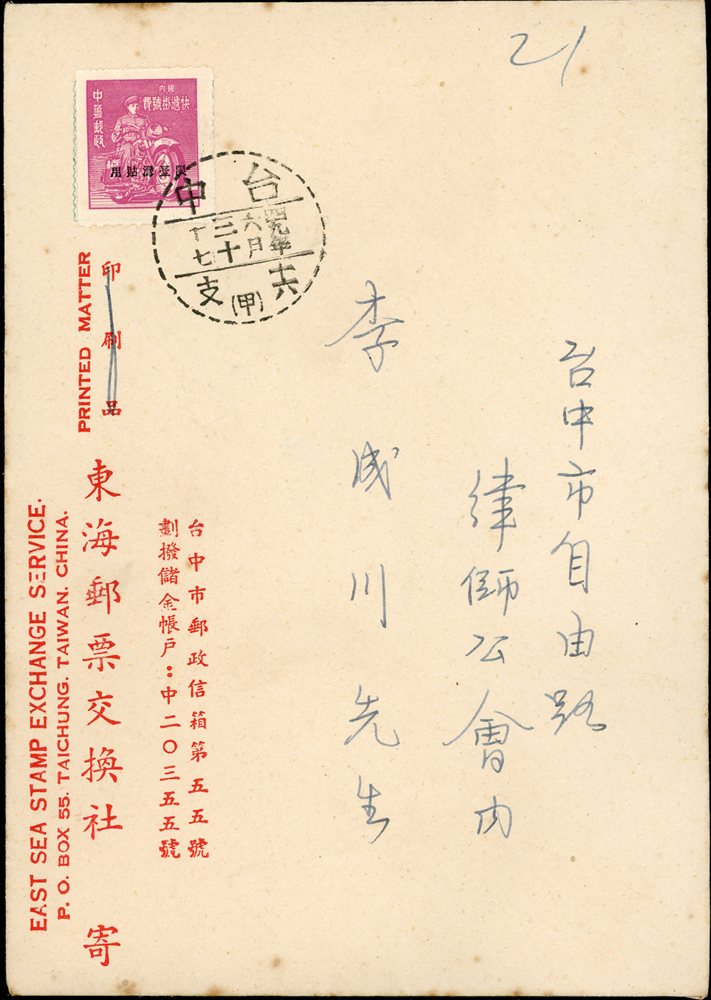 21
國內
快遞掛號費
中華郵政
限臺灣貼用
台中
四九年
六月
三十
十七
支
(甲)
台中市自由路
律師公會內
李成川先生
台中市郵政信箱第五五號
劃撥儲金帳戶：中二〇三五五號
印刷品
PRINTED MATTER
東海郵票交換社 寄
P. O. BOX 55. TAICHUNG. TAIWAN. CHINA.
EAST SEA STAMP EXCHANGE SERVICE.